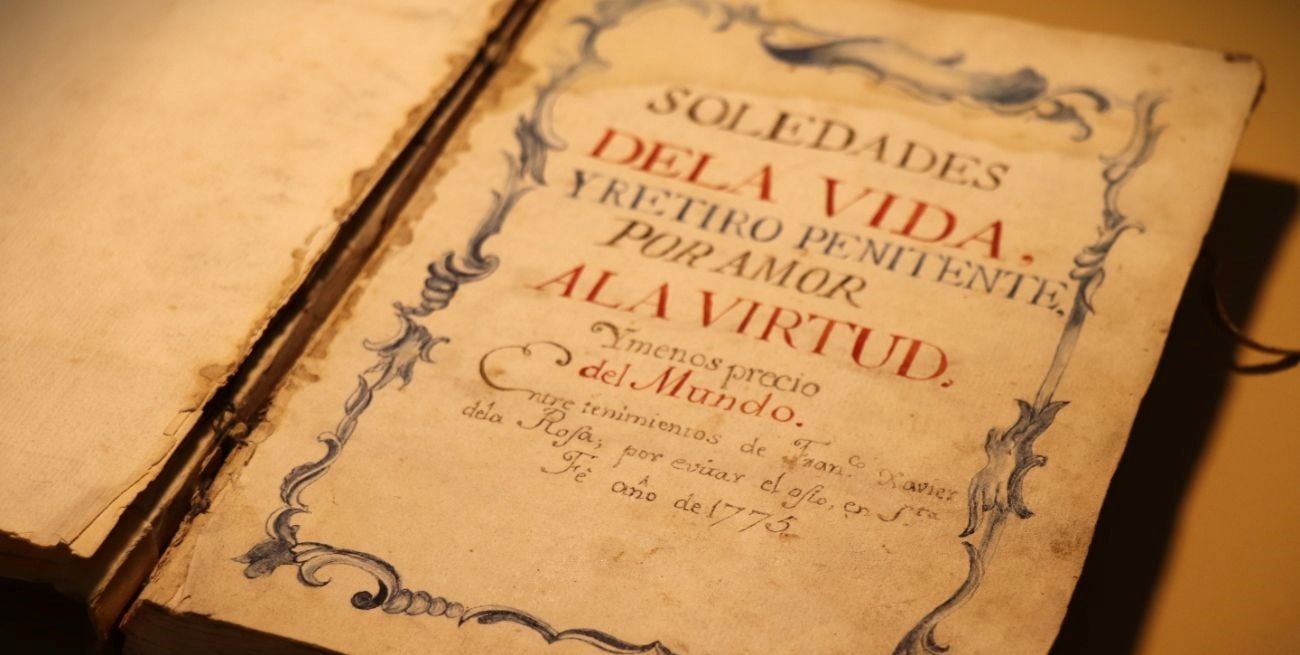 SOLEDADES
DELA VIDA,
Y RETIRO PENITENTE.
POR AMOR
ALA VIRTUD.
Y menos precio
del Mundo.
Entre tenimientos de Fran.co Xavier
dela Rosa; por evitar el osio, en S.ta
Fê año de 1775